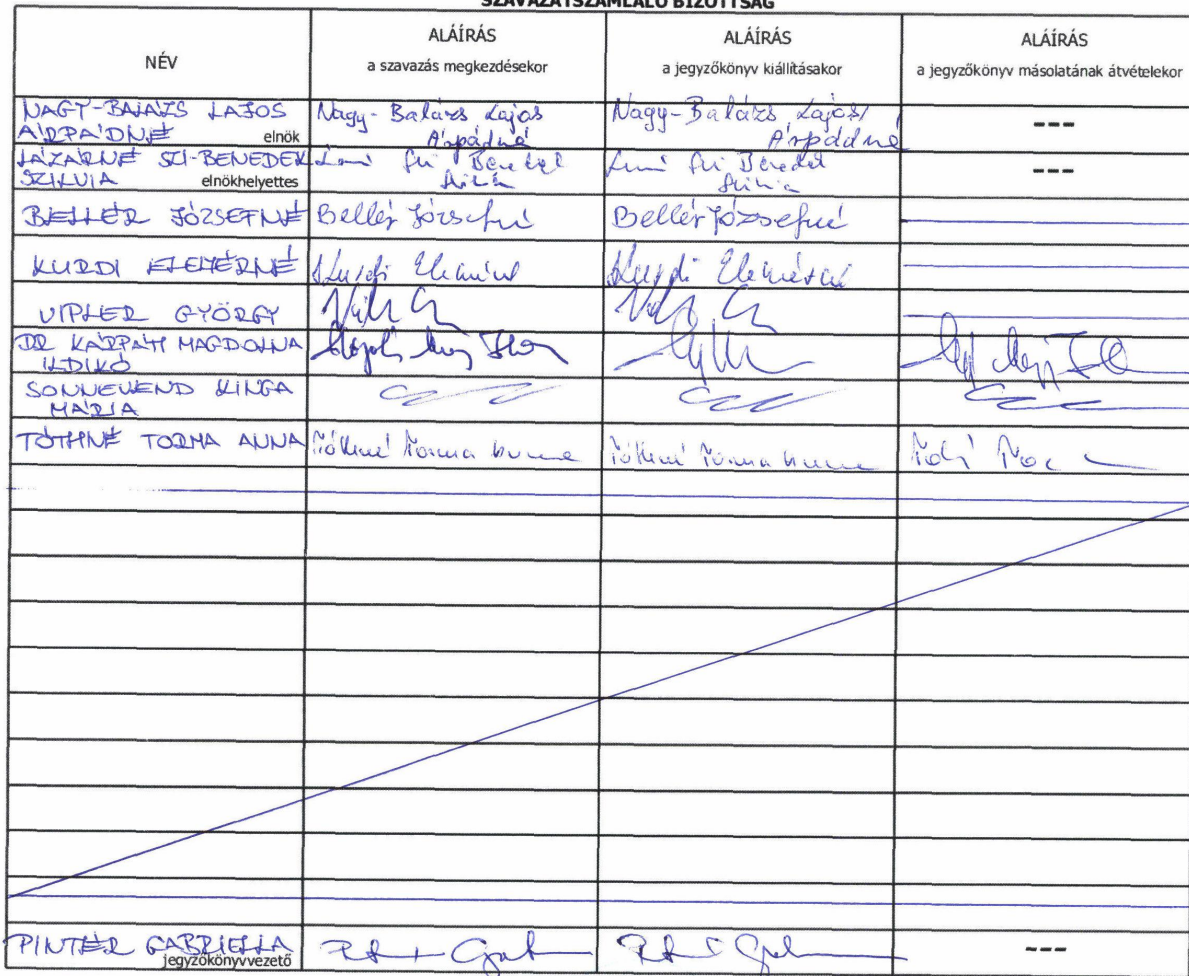 SZAVAZATSZÁMLÁLÓ BIZOTTSÁG
NÉV
ALÁÍRÁS
a szavazás megkezdésekor
ALÁÍRÁS
a jegyzőkönyv kiállításakor
ALÁÍRÁS
a jegyzőkönyv másolatának átvételekor
NAGY-BALÁZS LAJOS
ÁRPÁDNÉ elnök
Nagy-Balázs Lajos
Árpádné
Nagy-Balázs Lajos
Árpádné
---
LÁZÁRNÉ SZI-BENEDEK
SZILVIA elnökhelyettes
---
BELLÉR JÓZSEFNÉ
Bellér Józsefné
Bellér Józsefné
KURDI ELEMÉRNÉ
Kurdi Elemérné
Kurdi Elemérné
VIPLER GYÖRGY
DR KÁRPÁTI MAGDOLNA
ILDIKÓ
SONNEVEND KINGA
MÁRIA
TÓTHNÉ TORMA ANNA
Tóthné Torma Anna
Tóthné Torma Anna
PINTÉR GABRIELLA
jegyzőkönyvvezető
---